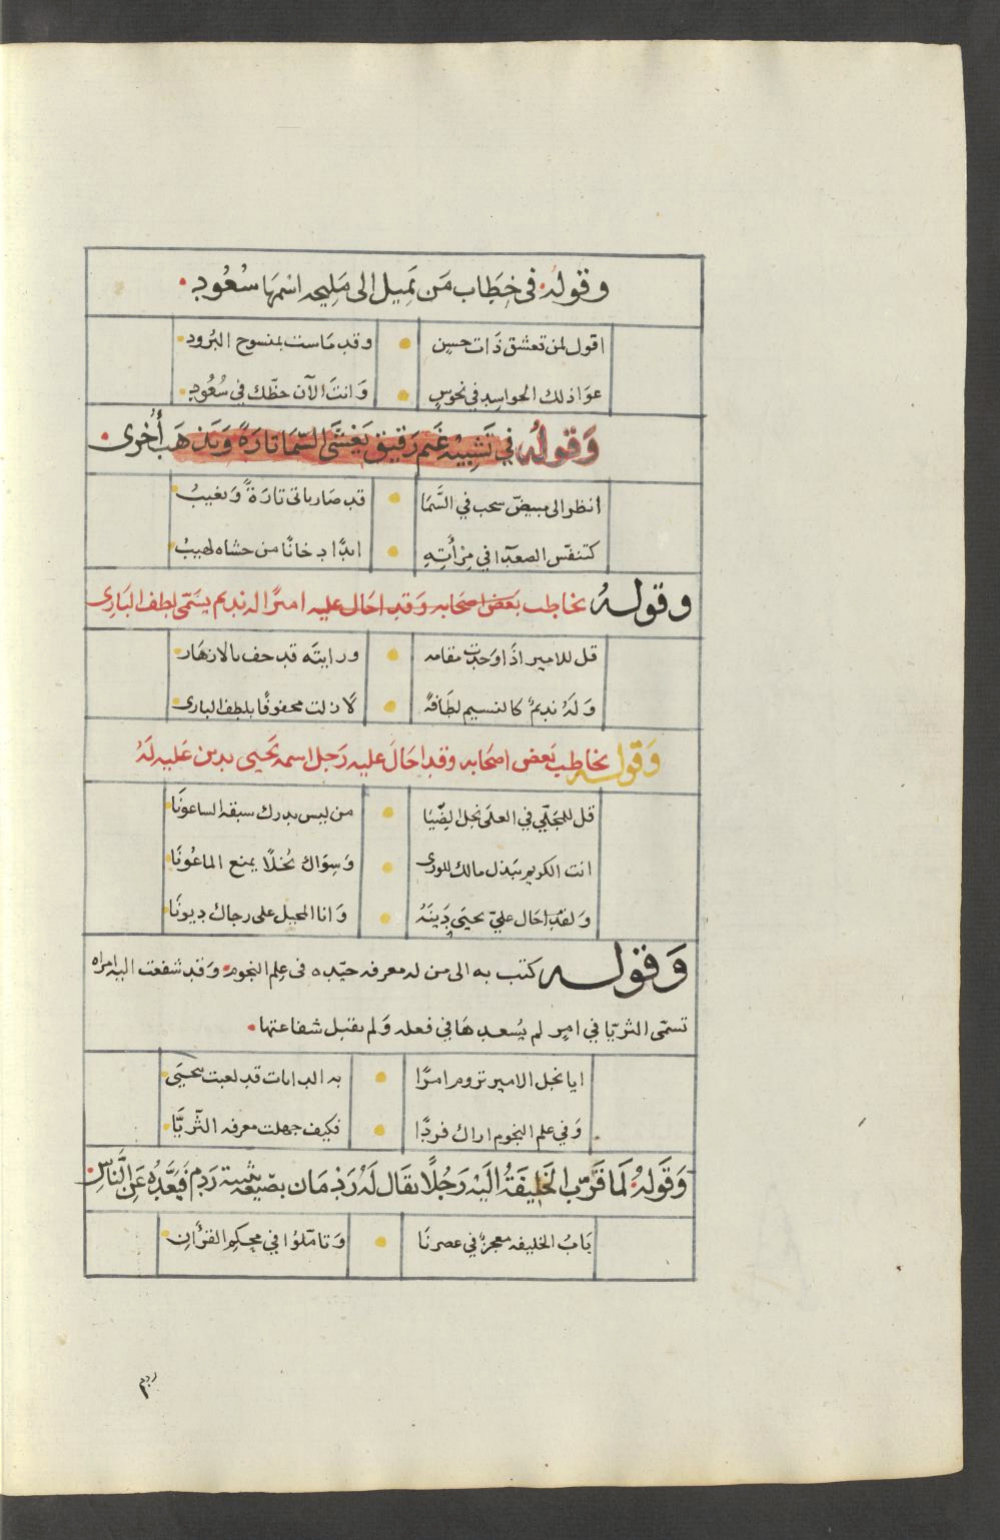 وقوله في خِطَاب مَن تَمِيل الى مَلِيحه اسْمهَا سُعُود
اقول لمن تعشق ذَات حسن وقد مَاست بمنسوج البُرود
عوَاذلك الحواسد في نحوسٍ وَانتَ الآن حظّك في سُعُودِ
وَقولُه في تَشبِيْه غَيم رَقيق يَغشَى السّمَا تارَةً وَيَذهَب أُخرى
أنظر الى مبيضّ سحب في السَّمَا قد صَار ياتى تارَةً وَيغيبُ
كتنفّس الصعدَا في مِرْأَتِهِ ابدًا دخانًا من حشاه لهيبُ
وقولهُ يخاطب بَعض اصحَابه وَقد احَال عليه امرًا له نديم يسَمّى لطف البَارى
قل للامير اذَا وَجدت مقامه ورايته قد حف بالازهَار
وَلَهُ نديمٌ كالنسيم لطَافةً لا زلت محفوفًا بلطف البارى
وَقوله يخاطب بَعض اصحَابه وقد احَالَ عليه رَجل اسمه يَحيى بدين عَليه لَهُ
قل للمجَلّي في العلَى نجل الضّيَا من ليس يدرك سبقه الساعونَا
انت الكريم تبذل مالك للورى وَسِوَاك بُخلًا يمنع الماعُونَا
وَلقد احَال عليّ يحيَى دَينَهُ وَانا المحيل على رجاك ديونَا
وَقوله كتب به الى من له معرفه جيّده في علم النجوم وَقد شفعت اليه امراه
تسمّى الثريّا في امرٍ لم يُسعدهَا في فعله وَلم يقبل شفاعتها
ايا نجل الامير تروم امرًا به الدايات قد لعبت بيَحيَى
وَفي علم النجوم اراك فردًا فكيف جهلت معرفه الثّريَّا
وَقَولهُ لَمَا قَرَّب الخَلِيفَةُ الَيْه رَجُلًا يقَال لَهُ رَدْمَان بصِيغَة تثنية رَدم فَبعَّدُه عَن النَّاسِ
بَابُ الخليفه معجزٌ في عصرنَا وَتامّلوُا في محكم القرْأن